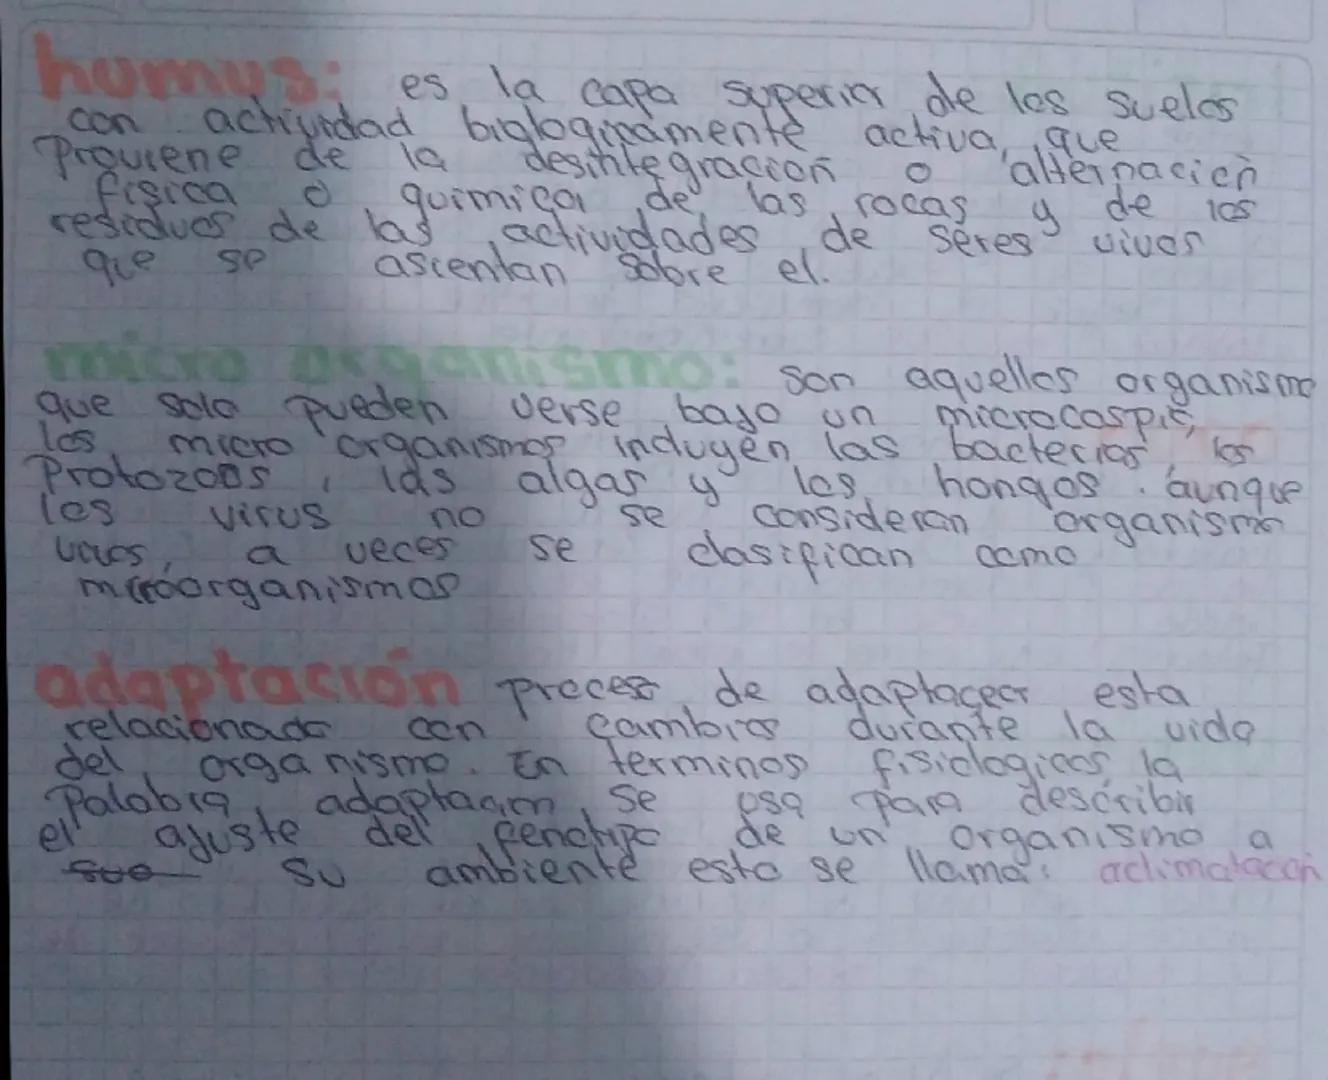 humus: es la capa superior de los suelos
con activridad biologicamente activa, que
Proviene de la desintegracion o alternacion
fisica o quimica de las rocas y de los
residuos de las actividades de seres vivos
que se ascentan sobre el.
micro organismo: son aquellos organismo
que solo pueden verse bajo un microcospis,
los micro organismos incluyen las bacterias, los
Protozoos, las algas y los hongos. aunque
los virus no se consideran organismo
vivos, a veces se clasifican como
microorganismos
adaptación proceso de adaptaceor esta
relacionado con cambios durante la vida
del organismo. En terminos fisiologicos, la
Palabra adaptacion, se usa para describir
el ajuste del fenotipo de un organismo a
su ambiente esto se llama: aclimatacion